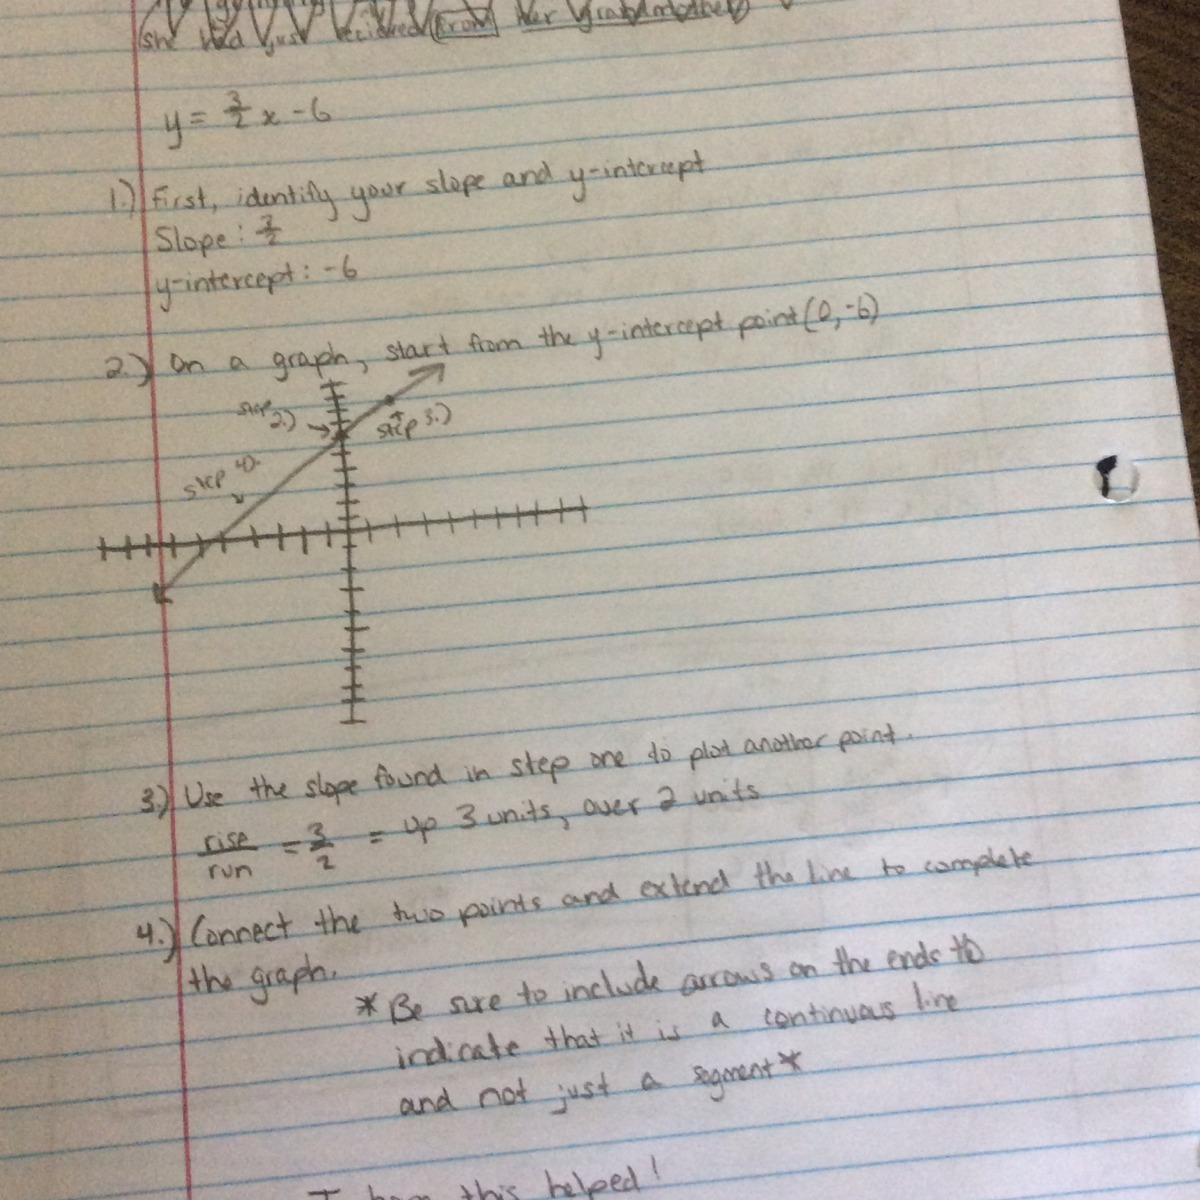 she had just received from her grandmother
y = 3/2 x - 6
1.) First, identify your slope and y-intercept
Slope: 3/2
y-intercept: -6
2.) On a graph, start from the y-intercept point (0,-6)
step 2.)
step 3.)
step 4).
3.) Use the slope found in step one to plot another point.
rise/run = 3/2 = up 3 units, over 2 units
4.) Connect the two points and extend the line to complete
the graph.
*Be sure to include arrows on the ends to
indicate that it is a continuous line
and not just a segment*
I hope this helped!